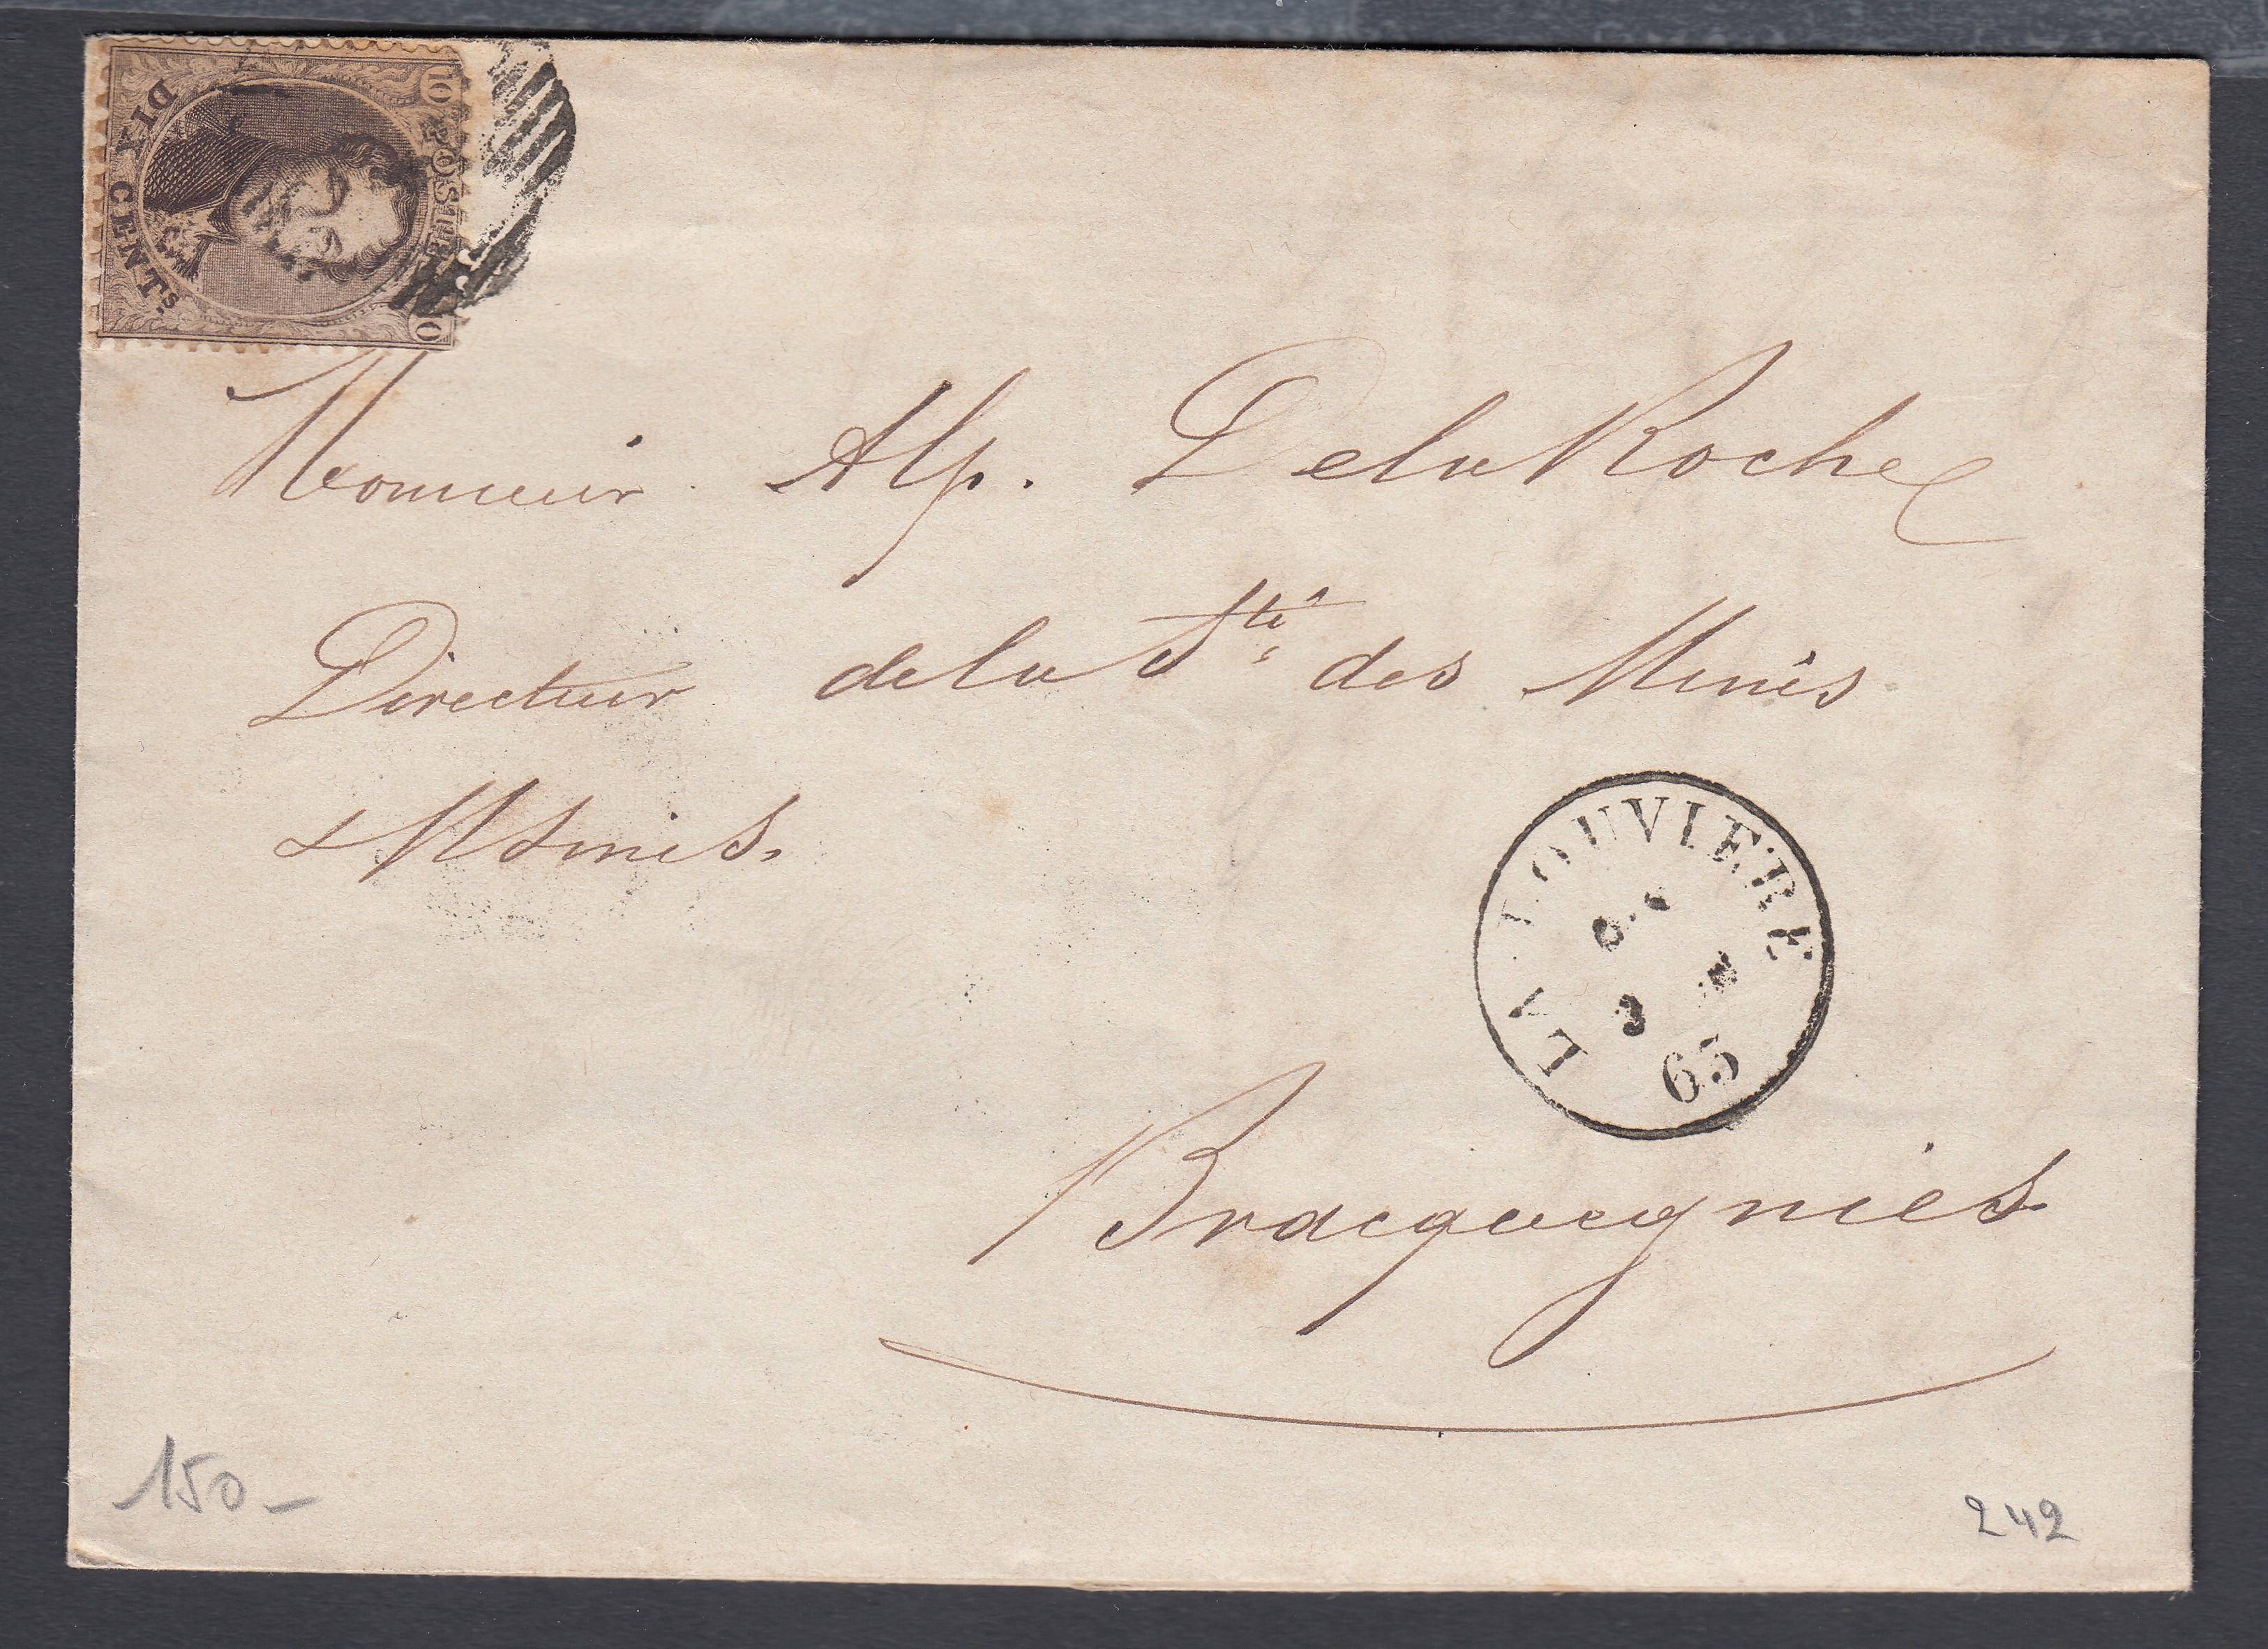 10 POSTES 10
DIX CENTS.
Monsieur Alp. DelaRoche
Directeur dela Sté des Mines
& Usines.
LA LOUVIERE
65
Bracquegnies
150-
242